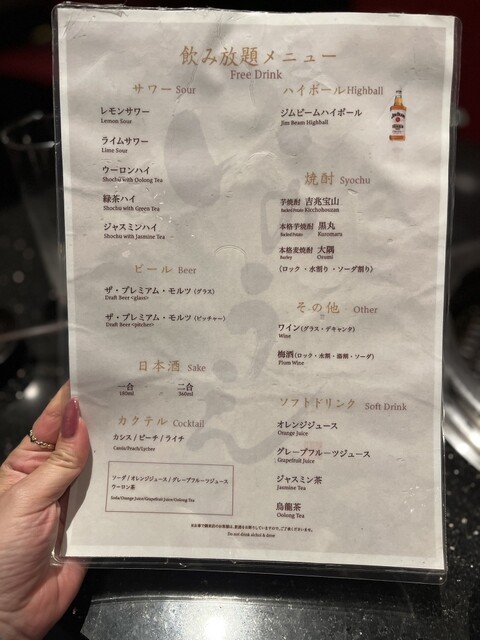 飲み放題メニュー
Free Drink
サワー Sour
レモンサワー
Lemon Sour
ライムサワー
Lime Sour
ウーロンハイ
Shochu with Oolong Tea
緑茶ハイ
Shochu with Green Tea
ジャスミンハイ
Shochu with Jasmine Tea
ビール Beer
ザ・プレミアム・モルツ (グラス)
Draft Beer <glass>
ザ・プレミアム・モルツ (ピッチャー)
Draft Beer <pitcher>
日本酒 Sake
一合 二合
180ml 360ml
カクテル Cocktail
カシス / ピーチ / ライチ
Cassis/Peach/Lychee
ソーダ / オレンジジュース / グレープフルーツジュース
ウーロン茶
Soda/Orange Juice/Grapefruit Juice/Oolong Tea
ハイボール Highball
ジムビームハイボール
Jim Beam Highball
焼酎 Syochu
芋焼酎 吉兆宝山
Kicchohouzan
本格芋焼酎 黒丸
Kuromaru
本格麦焼酎 大隅
Barley Osumi
(ロック・水割り・ソーダ割り)
その他 Other
ワイン (グラス・デキャンタ)
Wine
梅酒 (ロック・水割・湯割・ソーダ)
Plum Wine
ソフトドリンク Soft Drink
オレンジジュース
Orange Juice
グレープフルーツジュース
Grapefruit Juice
ジャスミン茶
Jasmine Tea
烏龍茶
Oolong Tea
Do not drink alchol & drive